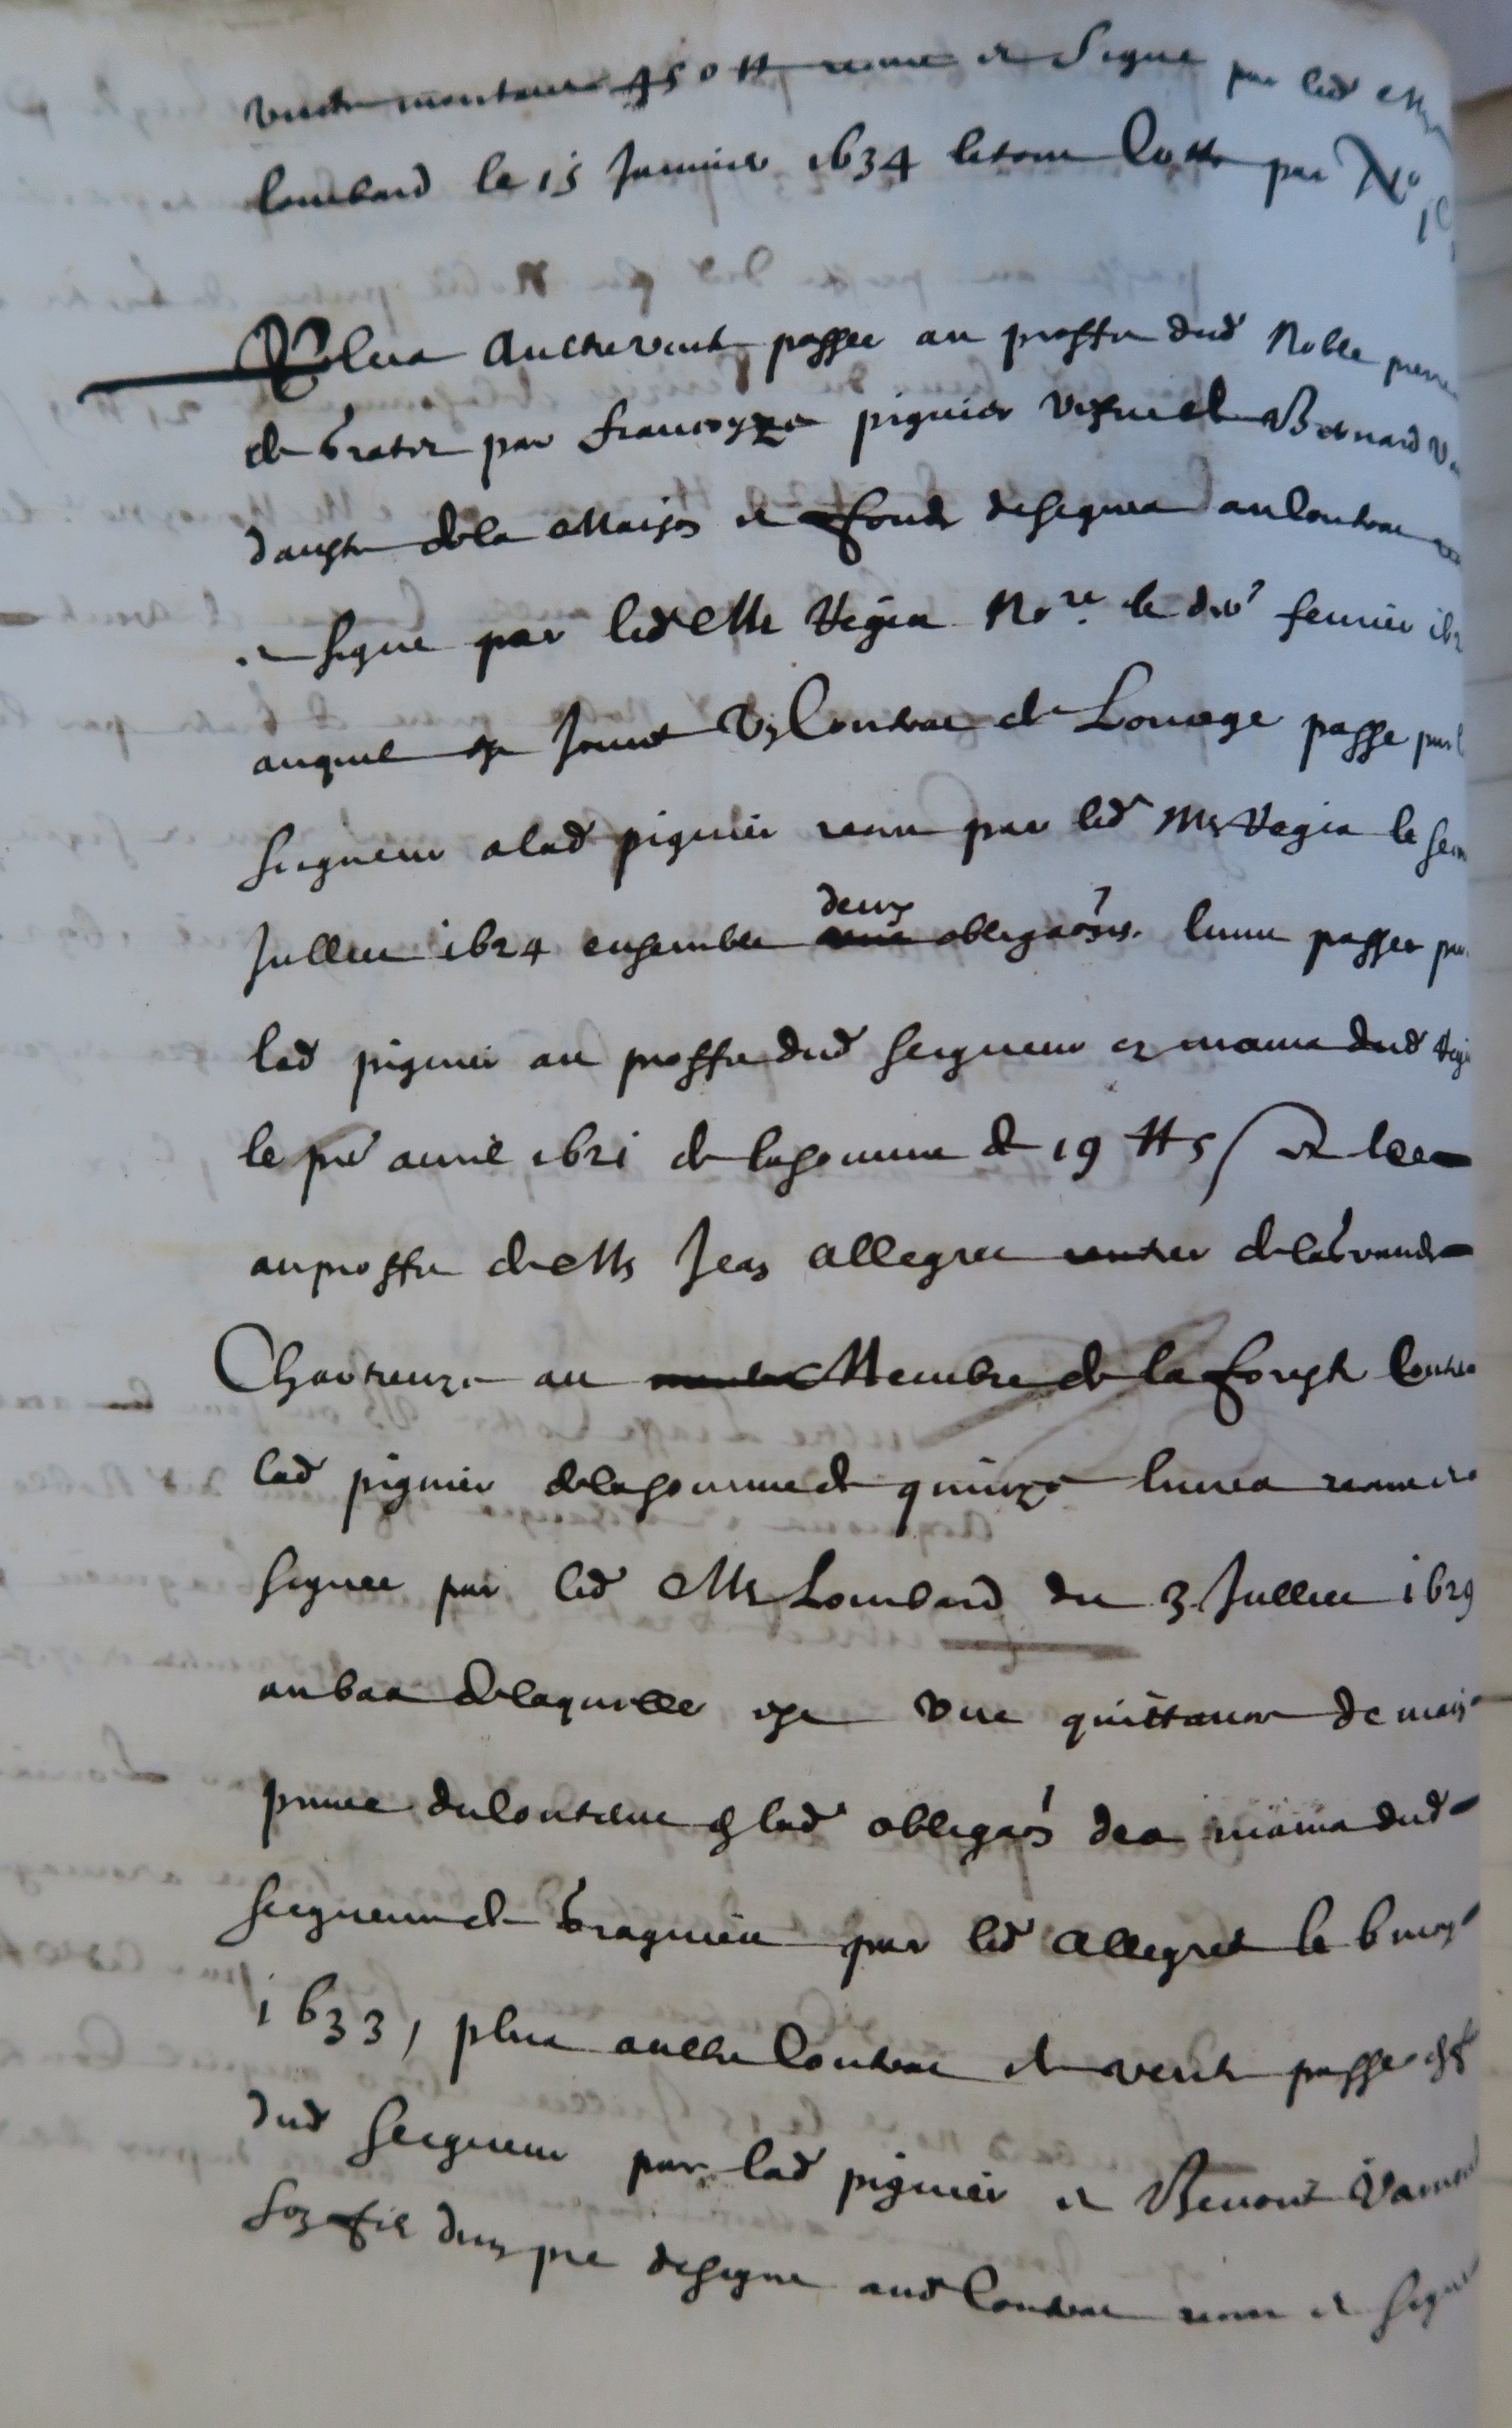 vente montant 450 tt receue et signe par led Mr
Lombard le 15 Janvier 1634 le tout Cotte par No
Plus Aultre vente passee au proffit dud Noble pierre
de Gratet par francoyze pignier vefve de Bernard
daugtr de la Maison et fondz designes au Contrac
et signe par led Me Vegia No.re le feuvrier
auquel est Joinct Vn Contrac de Louage passe
Seigneur a lad pignier receu par led Me Vegia le
Juillet 1624 ensemble deux obligaons. lune passee par
lad pignier au proffit dud Seigneur es mains dud
le pre avril 1621 de la somme de 19 tt 5 s et lee
au proffit de Me Jean Allegret rentier de la Grande
Chartreuze au Membre de la forest Contre
lad pignier de la somme de quinze livres receue et
signee par led Me Lombard du 3 Juillet 1629
au bas de laquelle est vne quittance de main
privee du contenu en lad obligaon des mains dud
Seigneur de Bragnieu par led Allegret le 6 may
1633, plus aultre Contrac de vente passe
dud Seigneur par lad pignier et Benoit
son filz dun pre designe aud Contrac receu et signe